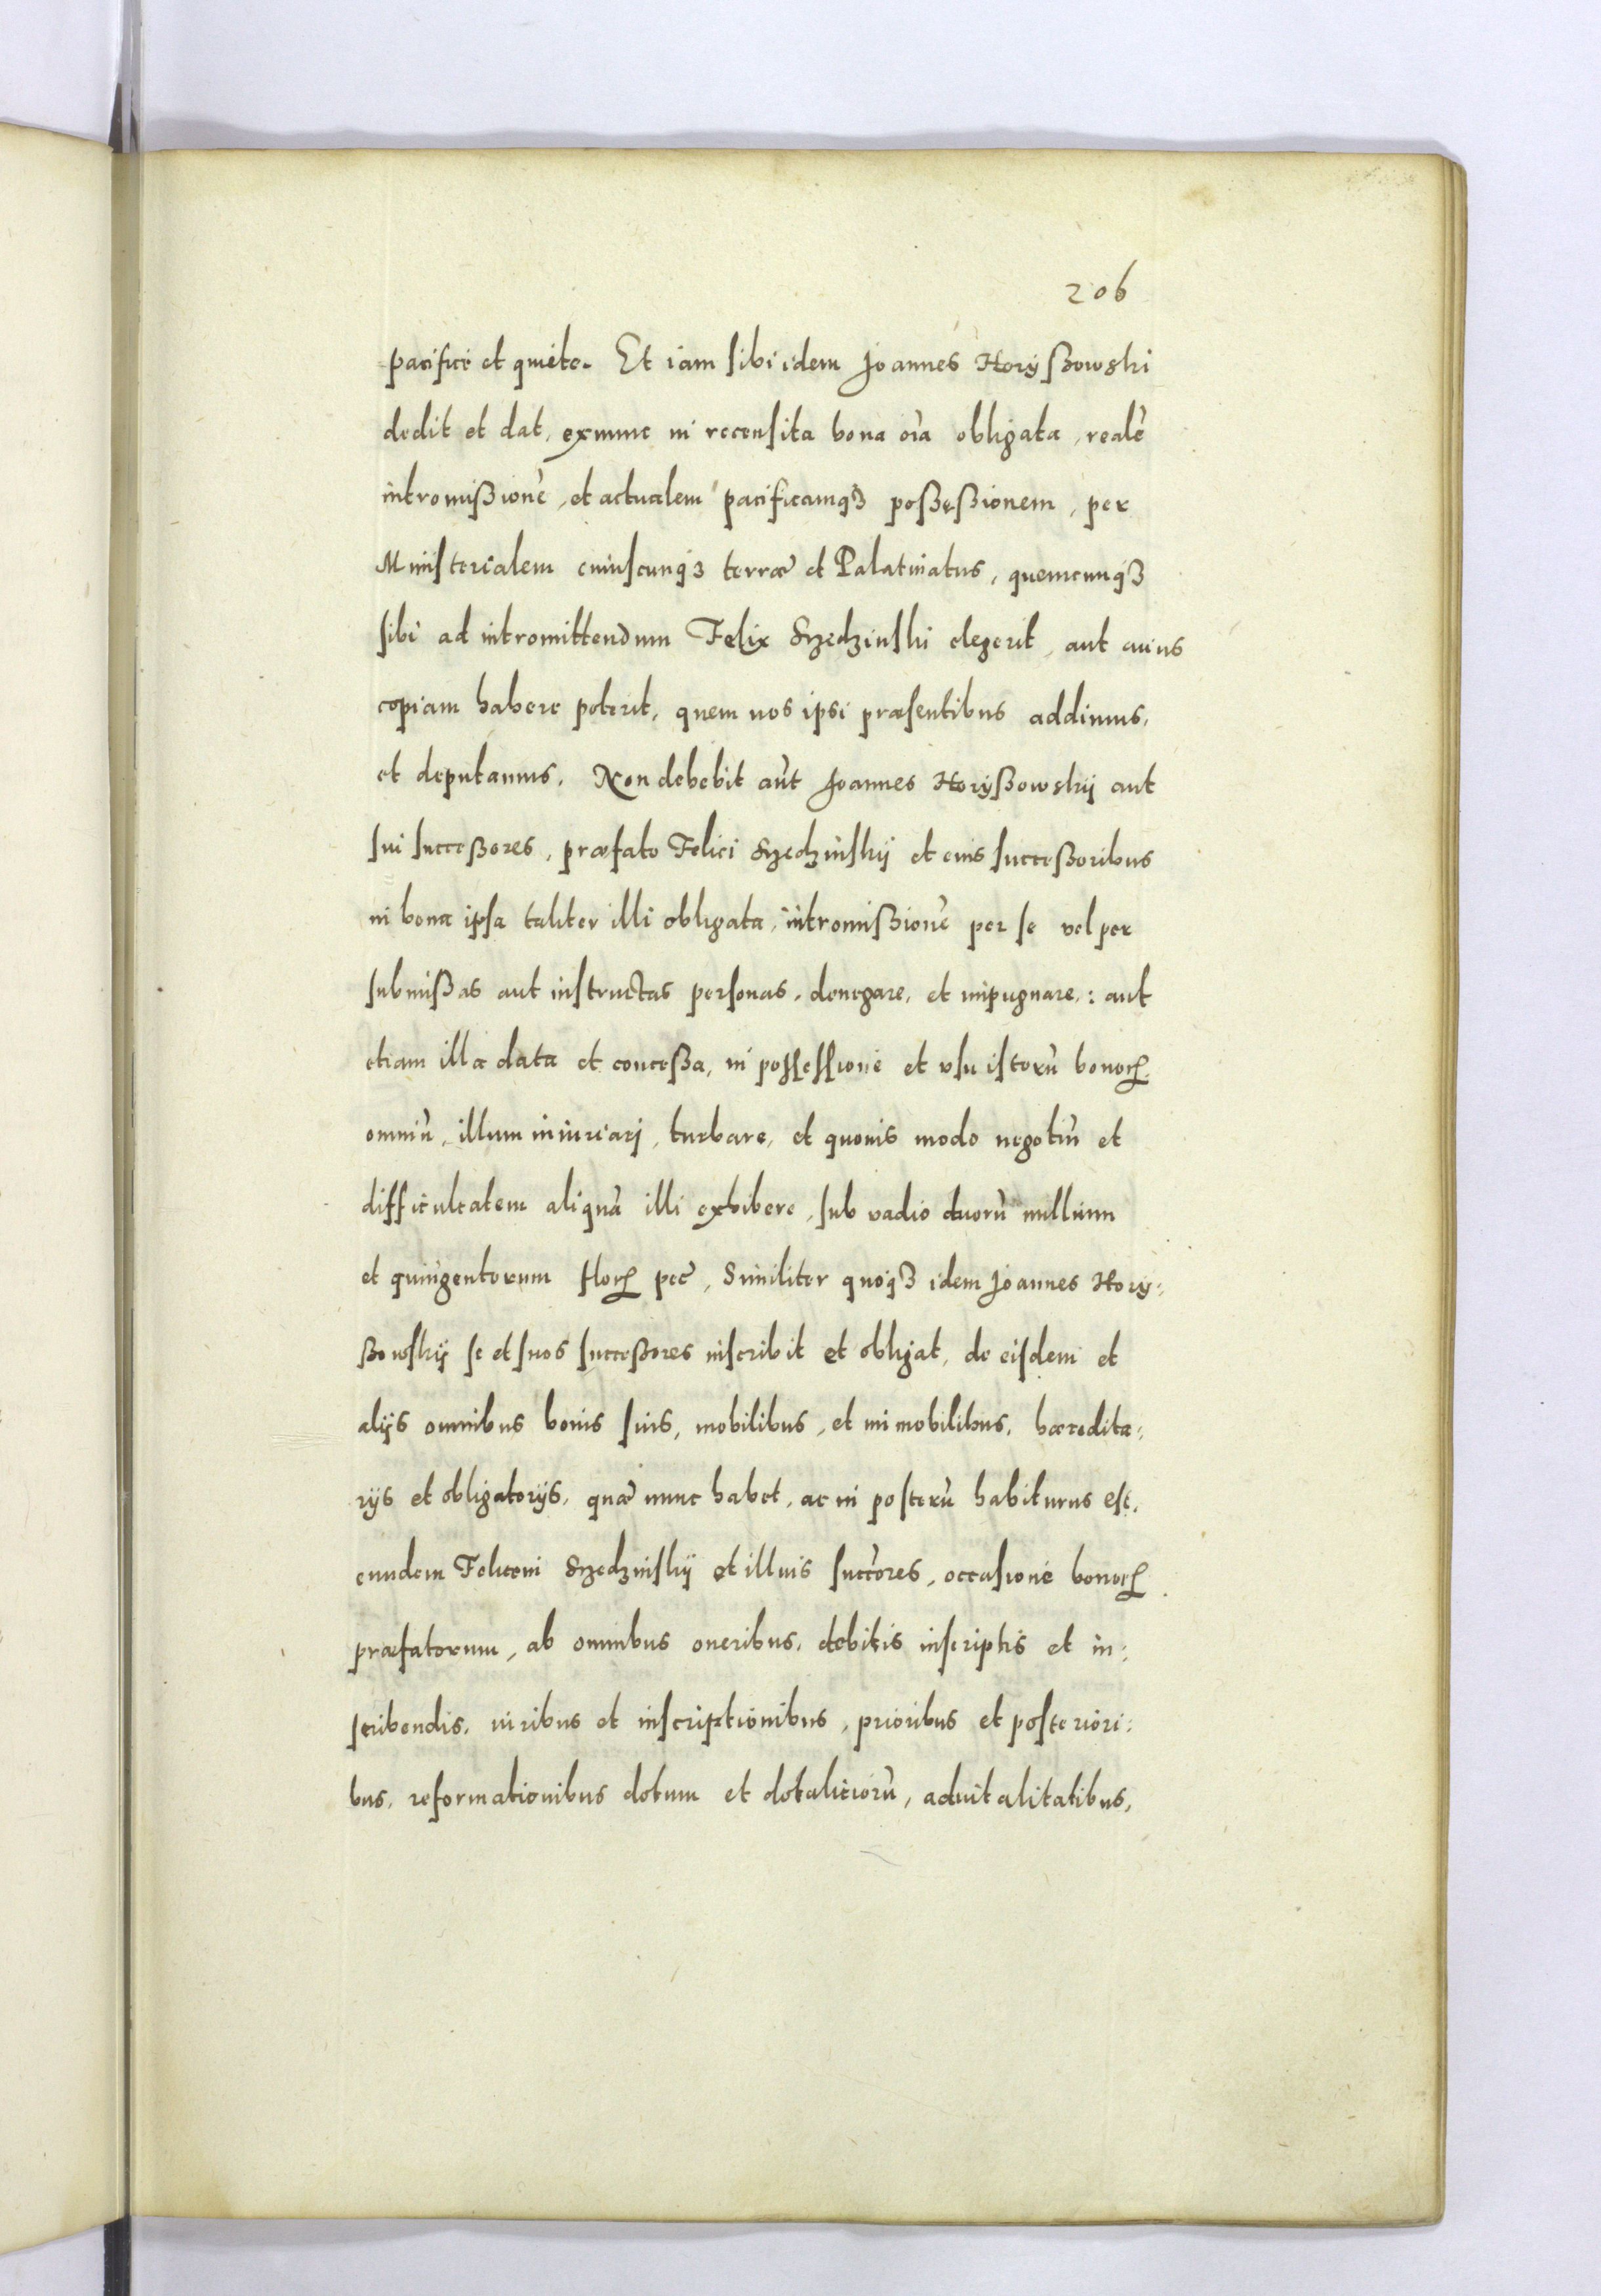 206
pacifice et quiete. Et iam sibi idem Joannes Horyßowski
dedit et dat, exnunc in recensita bona oīa obligata, realē
intromißionē, et actualem pacificamqȝ poßeßionem, per
Ministerialem cuiuscunqȝ terræ et Palatinatus, quemcunqȝ
sibi ad intromittendum Felix Szedzinski elegerit, aut cuius
copiam habere poterit, quem nos ipsi præsentibus addimus,
et deputamus. Non debebit aūt Joannes Horyßowskÿ aut
sui succeßores, præfato Felici Szedzinskÿ et eius succeßoribus
in bona ipsa taliter illi obligata, intromißionē per se vel per
submißas aut instructas personas, denegare, et impugnare,: aut
etiam illa data et conceßa, in possessione et vsu istorū bonorꝝ
omniū, illum iniuriari, turbare, et quouis modo negotiū et
difficultatem aliquā illi exhibere, sub vadio duorū millium
et quingentorum florꝝ pec̃, Similiter quoqȝ idem Joannes Hory:
ßowskÿ se et suos succeßores inscribit et obligat, de eisdem et
alijs omnibus bonis suis, mobilibus, et immobilibus, hæredita:
rijs et obligatorijs, quæ nunc habet, ac in posterū habiturus est,
eundem Feliceni Szedzinskÿ et illius succ̃ores, occasione bonorꝝ
præfatorum, ab omnibus oneribus, debitis inscriptis et in:
scribendis, iuribus et inscriptionibus, prioribus et posteriori:
bus, reformationibus dotum et dotaliciorū, aduitalitatibus,